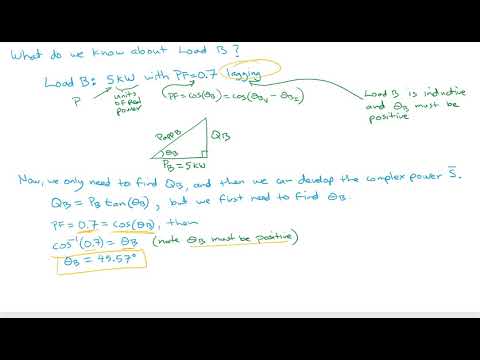 What do we know about Load B?
Load B: 5kW with PF=0.7 lagging
P
units of real power
(PF=cos(θB)=cos(θBv-θBI)
Load B is inductive
and θB must be
positive
PappB
QB
θB
PB=5kW
Now, we only need to find QB, and then we can develop the complex power S̄.
QB = PB tan(θB), but we first need to find θB.
PF=0.7=cos(θB), then
cos⁻¹(0.7)=θB (note θB must be positive)
θB=45.57°